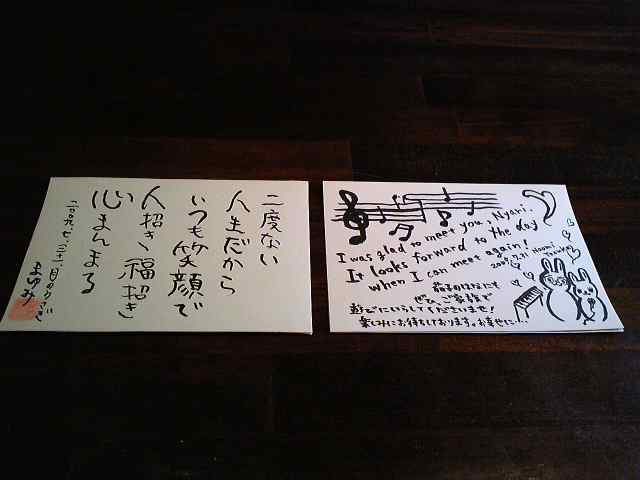 二度ない
人生だから
いつも笑顔で
人招き、福招き
心まんまる
二〇〇九、七、三十一
まゆみ
I was glad to meet you, Nyari.
It looks forward to the day
when I can meet again!
2009.7.31 Naomi
ぜひ、ご家族で
遊びにいらしてくださいませ!
楽しみにお待ちしております。お幸せに…